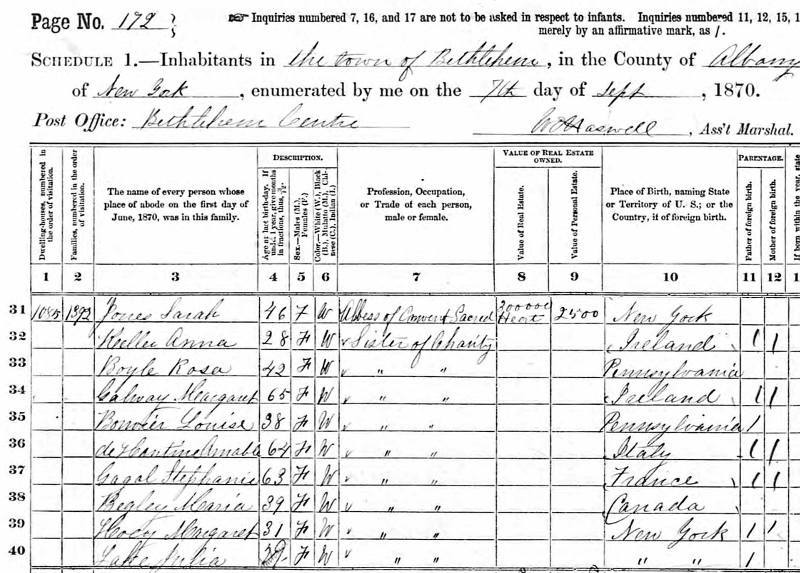 Page No. 172
☞ Inquiries numbered 7, 16, and 17 are not to be asked in respect to infants. Inquiries numbered 11, 12, 15, 1
merely by an affirmative mark, as /.
SCHEDULE 1.—Inhabitants in the town of Bethlehem, in the County of Albany
of New York, enumerated by me on the 7th day of Sept, 1870.
Post Office: Bethlehem Centre
Haswell, Ass't Marshal.
Dwelling-houses, numbered in the order of visitation.
Families, numbered in the order of visitation.
The name of every person whose place of abode on the first day of June, 1870, was in this family.
DESCRIPTION.
Age at last birth-day. If under 1 year, give months in fractions, thus,
Sex.—Males (M.), Females (F.)
Color.—White (W.), Black (B.), Mulatto (M.), Chinese (C.), Indian (I.)
Profession, Occupation, or Trade of each person, male or female.
VALUE OF REAL ESTATE OWNED.
Value of Real Estate.
Value of Personal Estate.
Place of Birth, naming State or Territory of U. S.; or the Country, if of foreign birth.
PARENTAGE.
Father of foreign birth.
Mother of foreign birth.
If born within the year, state
1 2 3 4 5 6 7 8 9 10 11 12 1
31 1392 Jones Sarah 46 F W Abbess of Convent Sacred Heart 200000 2500 New York
32 Anna 28 F W Sister of Charity Ireland / /
33 Boyle Rosa 42 F W " " Pennsylvania
34 Galway Margaret 65 F W " " Ireland / /
35 Bouvier Louise 38 F W " " Pennsylvania /
36 64 F W " " Italy / /
37 Stephanie 63 F W " " France / /
38 Begley Maria 39 F W " " Canada
39 Margaret 31 F W " " New York / /
40 Julia F W " " " " /